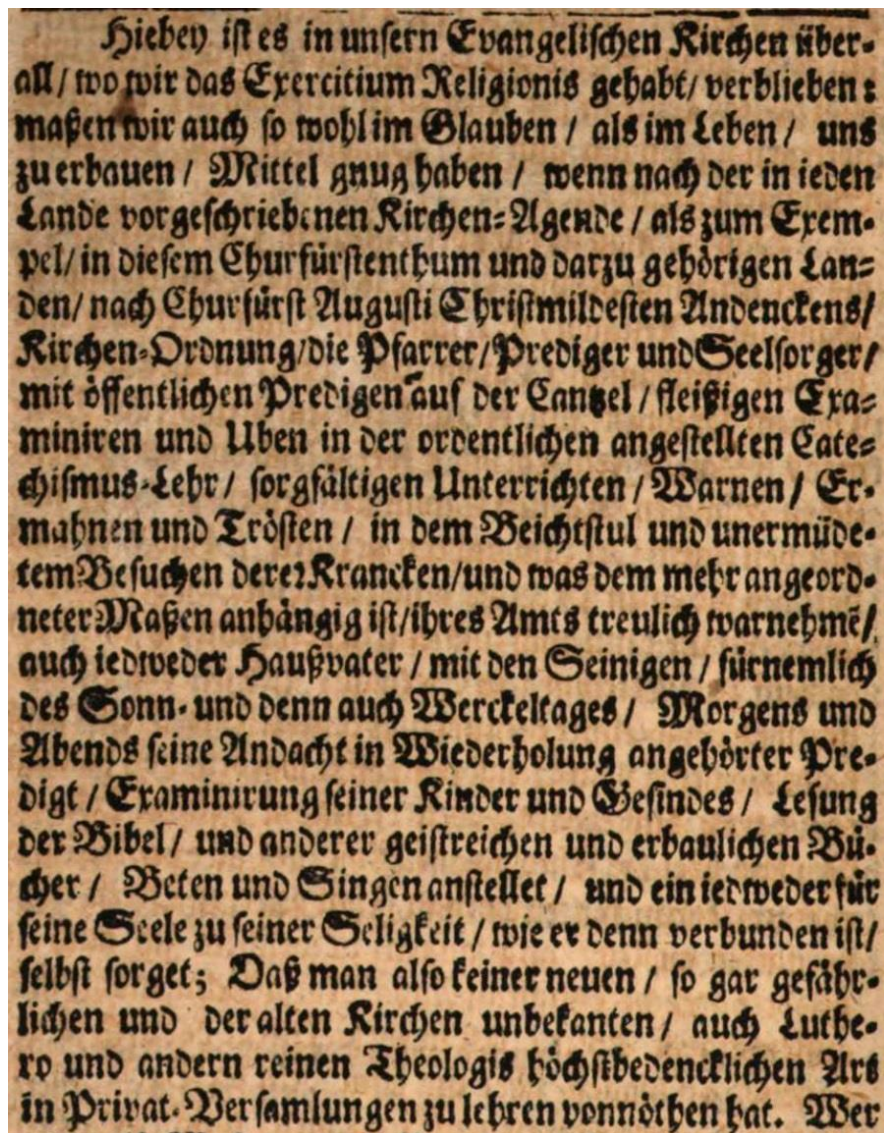 Hiebey ist es in unsern Evangelischen Kirchen über-
all / wo wir das Exercitium Religionis gehabt / verblieben:
maßen wir auch so wohl im Glauben / als im Leben / uns
zu erbauen / Mittel gnug haben / wenn nach der in ieden
Lande vorgeschriebenen Kirchen-Agende / als zum Exem-
pel / in diesem Churfürstenthum und darzu gehörigen Lan-
den / nach Churfürst Augusti Christmildesten Andenckens /
Kirchen-Ordnung / die Pfarrer / Prediger und Seelsorger /
mit öffentlichen Predigen auf der Cantzel / fleißigen Exa-
miniren und Uben in der ordentlichen angestellten Cate-
chismus-Lehr / sorgfältigen Unterrichten / Warnen / Er-
mahnen und Trösten / in dem Beichtstul und unermüde-
tem Besuchen derer Krancken / und was dem mehr angeord-
neter Maßen anhängig ist / ihres Amts treulich warnehmē /
auch iedweder Haußvater / mit den Seinigen / fürnemlich
des Sonn- und denn auch Werckeltages / Morgens und
Abends seine Andacht in Wiederholung angehörter Pre-
digt / Examinirung seiner Kinder und Gesindes / Lesung
der Bibel / und anderer geistreichen und erbaulichen Bü-
cher / Beten und Singen anstellet / und ein iedweder für
seine Seele zu seiner Seligkeit / wie er denn verbunden ist /
selbst sorget; Daß man also keiner neuen / so gar gefähr-
lichen und der alten Kirchen unbekanten / auch Luthe-
ro und andern reinen Theologis höchstbedencklichen Art
in Privat-Versamlungen zu lehren vonnöthen hat. Wer